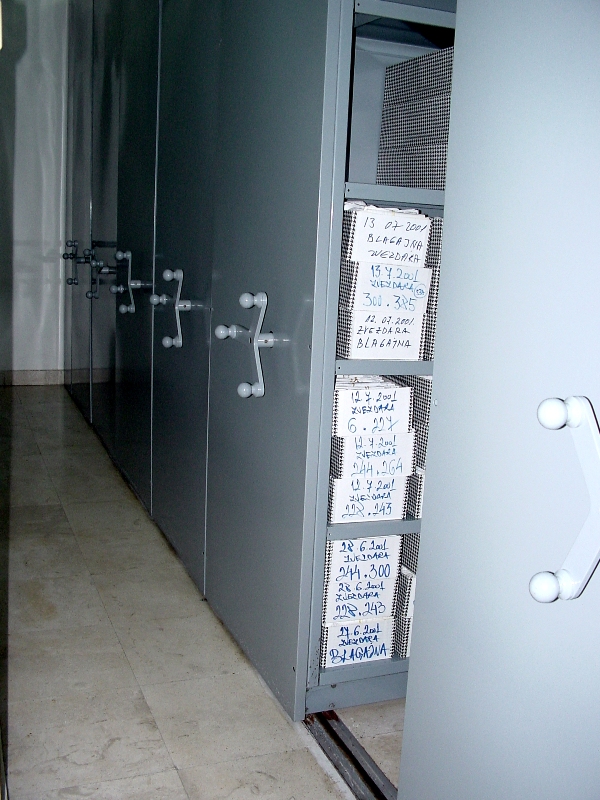 13 07 2001
BLAGAJNA
ZVEZDARA
13.7.2001
ZVEZDARA
300.385
12.07.2001.
ZVEZDARA
BLAGAJNA
12.7.2001
ZVEZDARA
6.227
12.7.2001
ZVEZDARA
244.264
12.7.2001
ZVEZDARA
228.243
28.6.2001
ZVEZDARA
244.300
28.6.2001
ZVEZDARA
228.243
27.6.2001
ZVEZDARA
BLAGAJNA